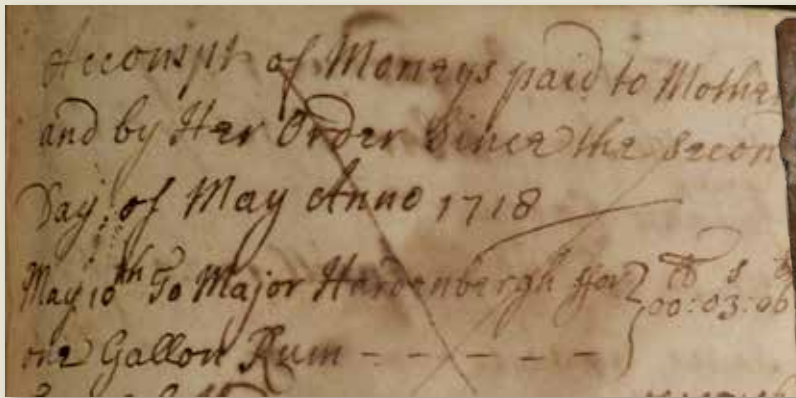 Accompt of Moneys paid to Mother
and by Her Order Since the Secon
Day: of May Anno 1718
May 10th To Major Hardenbergh ffor } lb s d
one Gallon Rum - - - - - - } 00:03:06